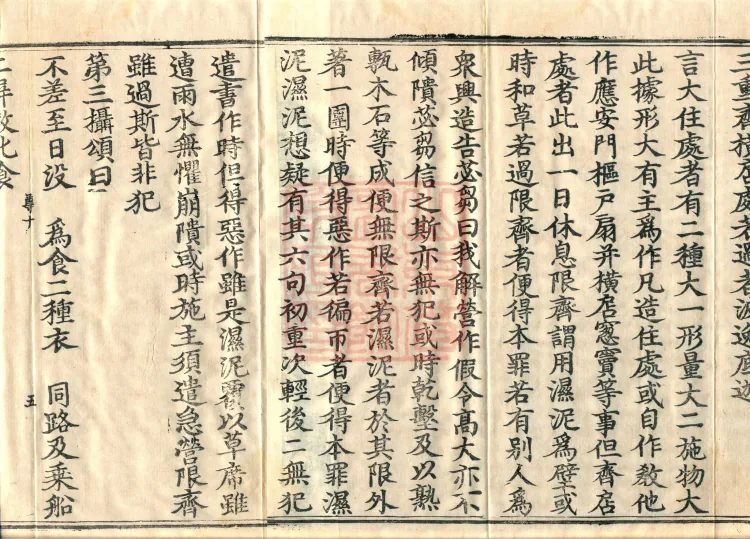 言大住處者有二種大一形量大二施物大
此據形大有主為作凡造住處或自作教他
作應安門樞戶扇并橫居窻竇等事但齊居
處者此出一日休息限齊謂用濕泥為壁或
時和草若過限齊者便得本罪若有別人為
衆興造告苾芻曰我解營作假令高大亦不
傾隤苾芻信之斯亦無犯或時乾墼及以熟
甎木石等成便無限齊若濕泥者於其限外
著一團時便得惡作若徧帀者便得本罪濕
泥濕泥想疑有其六句初重次輕後二無犯
遣書作時但得惡作雖是濕泥覆以草席雖
遭雨水無懼崩隤或時施主須遣急營限齊
雖過斯皆非犯
第三攝頌曰
不差至日没 為食二種衣 同路及乘船
尊十 五